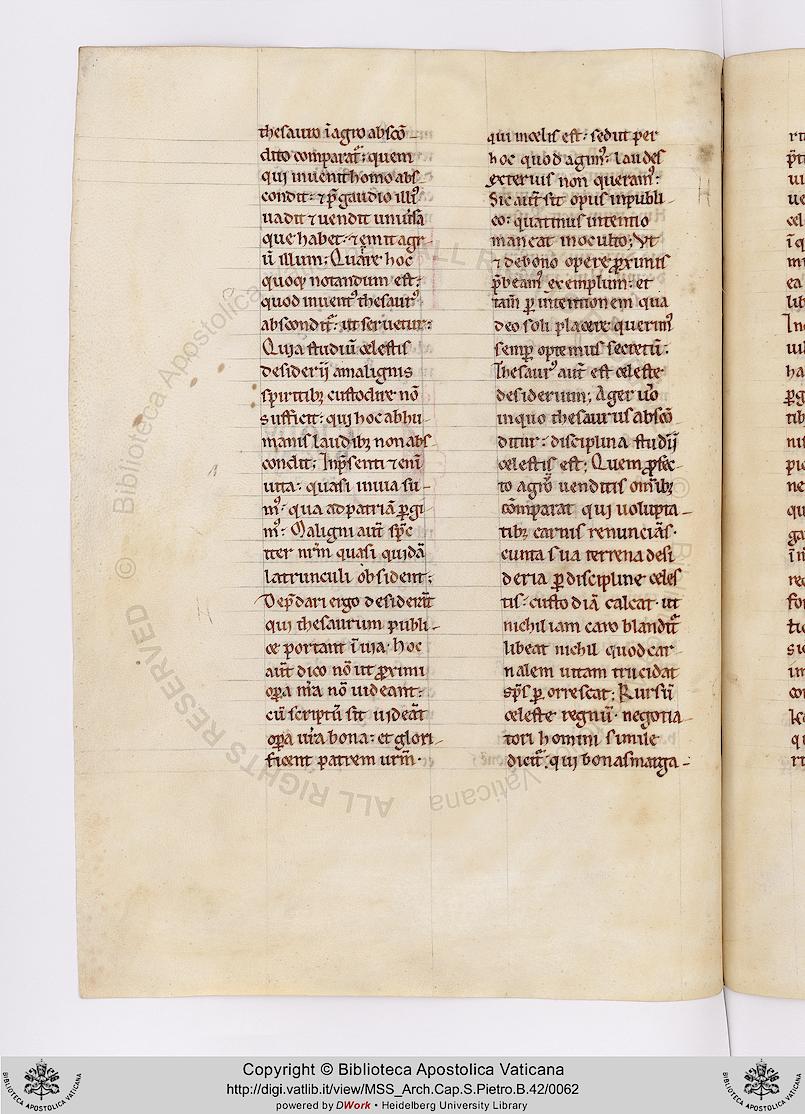 thesauro ī agro abscō-
dito comparat᷑: quem
qui inuenit homo abs
condit: ⁊ p̄ gaudio illiꝰ
uadit ⁊ uendit uniūsa
que habet: ⁊ emit agr-
ū illum; Quare hoc
quoqꝫ notandum est:
quod inuentꝰ thesaurꝰ
abscondit᷑: ut seruetur:
Quia studiū celestis
desiderij a malignis
spiritibꝫ custodire nō
sufficit: qui hoc ab hu-
manis laudibꝫ non abs
condit; In p̄senti eteni
uita: quasi in uia su-
mꝰ: qua ad patriā ꝑgi-
mꝰ: Maligni aut̄ sp̄c
tter nr̄m quasi quidā
latrunculi obsident;
Dep̄dari ergo desiderat̄
qui thesaurum publi-
ce portant ī uia. hoc
aut̄ dico nō ut ꝓximi
oꝑa nr̄a nō uideant:
cū scriptū sit uideāt
oꝑa ur̄a bona: et glori-
ficent patrem ur̄m.
qui in celis est: sed ut per
hoc quod agimꝰ: laudes
exterius non queramꝰ:
Sic aut̄ sit opus in publi-
co: quatinus intentio
maneat in occulto; Vt
⁊ de bono opere ꝓximis
p̄beamꝰ exemplum: et
tam̄ ꝑ intentionem qua
deo soli placere querimꝰ
semꝑ optemus secretū:
Thesaurꝰ aut̄ est celeste
desiderium; Ager uͦo
in quo thesaurus abscō
ditur: disciplina studij
celestis est; Quem ꝓfec-
to agrū uenditis omībꝫ
cōmparat qui uolupta-
tibꝫ carnis renunciās.
cuncta sua terrena desi
deria ꝑ discipline celes
tis: custodiā calcat. ut
nichil iam caro blandit᷑
libeat nichil quod car-
nalem uitam trucidat
sp̄s ꝑorrescat: Rursū
celeste regnū. negotia-
tori homini simile
dicit᷑. qui bonas marga-
Copyright © Biblioteca Apostolica Vaticana
http://digi.vatlib.it/view/MSS_Arch.Cap.S.Pietro.B.42/0062
powered by DWork • Heidelberg University Library